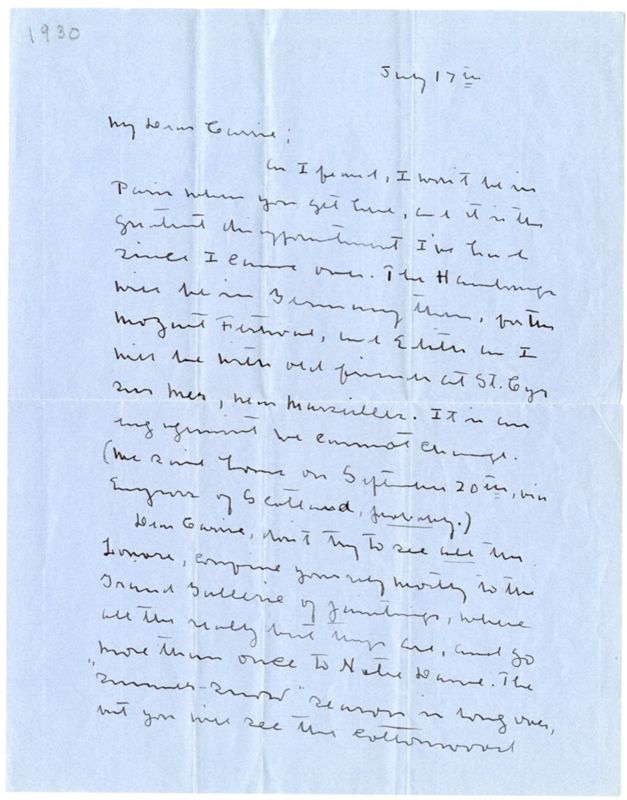 1930
July 17th
My Dear Carrie;
As I feared, I won't be in
Paris when you get here, and it is the
greatest disappointment I've had
since I came over. The Hambourgs
will be in Germany then, for the
Mozart Festival, and Edith and I
will be with old friends at St. Cyr
sur Mer, near Marseilles. It is an
engagement we cannot change.
(We sail home on September 20th, via
Empress of Scotland, probably.)
Dear Carrie, don't try to see all the
Louvre, confine yourself mostly to the
Grand Gallerie of paintings, where
all the really best things are, and go
more than once to Notre Dame. The
"summer-snow" season is long over,
but you will see the cottonwood